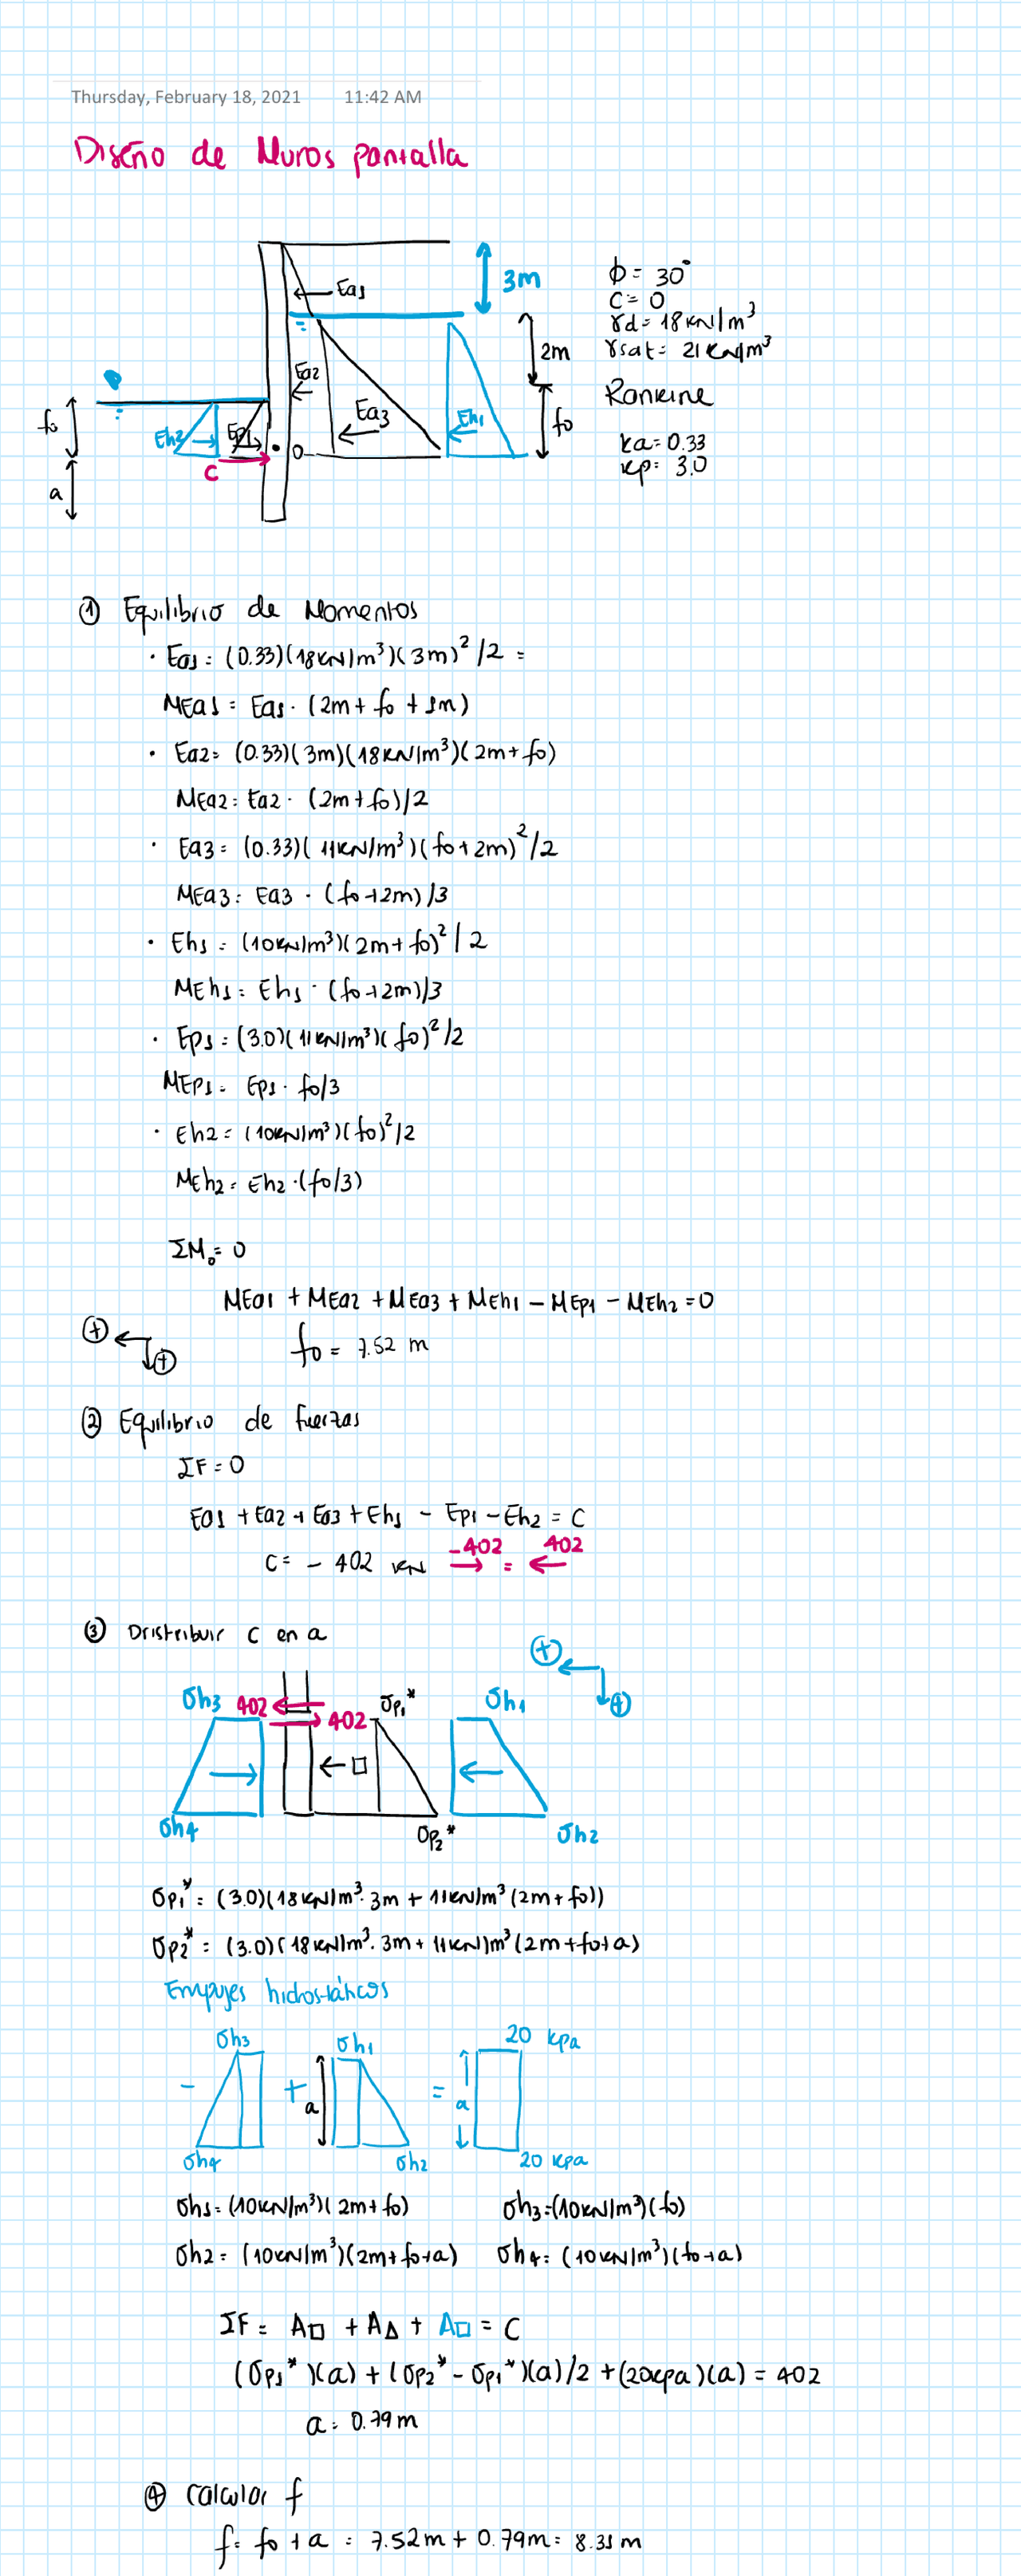 Thursday, February 18, 2021 11:42 AM
Diseño de Muros pantalla
Ea1
3m
ϕ = 30°
C = 0
γd = 18 KN/m³
γsat = 21 KN/m³
2m
Ea2
Rankine
fo
Eh2
Ep1
Ea3
Eh1
fo
ka = 0.33
kp = 3.0
C
O
a
① Equilibrio de Momentos
· Ea1 = (0.33)(18KN/m³)(3m)²/2 =
MEa1 = Ea1 · (2m + fo + 1m)
· Ea2 = (0.33)(3m)(18KN/m³)(2m + fo)
MEa2 = Ea2 · (2m + fo)/2
· Ea3 = (0.33)(11KN/m³)(fo + 2m)²/2
MEa3 = Ea3 · (fo + 2m)/3
· Eh1 = (10KN/m³)(2m + fo)²/2
MEh1 = Eh1 · (fo + 2m)/3
· Ep1 = (3.0)(11KN/m³)(fo)²/2
MEp1 = Ep1 · fo/3
· Eh2 = (10KN/m³)(fo)²/2
MEh2 = Eh2 · (fo/3)
ΣMo = 0
MEa1 + MEa2 + MEa3 + MEh1 - MEp1 - MEh2 = 0
⊕
⊕
fo = 7.52 m
② Equilibrio de fuerzas
ΣF = 0
Ea1 + Ea2 + Ea3 + Eh1 - Ep1 - Eh2 = C
C = - 402 KN -402 → = 402 ←
③ Dristribuir C en a
⊕
⊕
σh3
402
402
σp1*
σh1
← □
σh4
σp2*
σh2
σp1* = (3.0)(18KN/m³·3m + 11KN/m³(2m + fo))
σp2* = (3.0)(18KN/m³·3m + 11KN/m³(2m + fo + a)
Empujes hidrostáticos
σh3
σh1
20 kpa
-
+
a
=
a
σh4
σh2
20 kpa
σh1 = (10KN/m³)(2m + fo) σh3 = (10KN/m³)(fo)
σh2 = (10KN/m³)(2m + fo + a) σh4 = (10KN/m³)(fo + a)
ΣF = A□ + A△ + A□ = C
(σp1*)(a) + (σp2* - σp1*)(a)/2 + (20kpa)(a) = 402
a = 0.79m
④ Calcular f
f = fo + a = 7.52m + 0.79m = 8.31 m